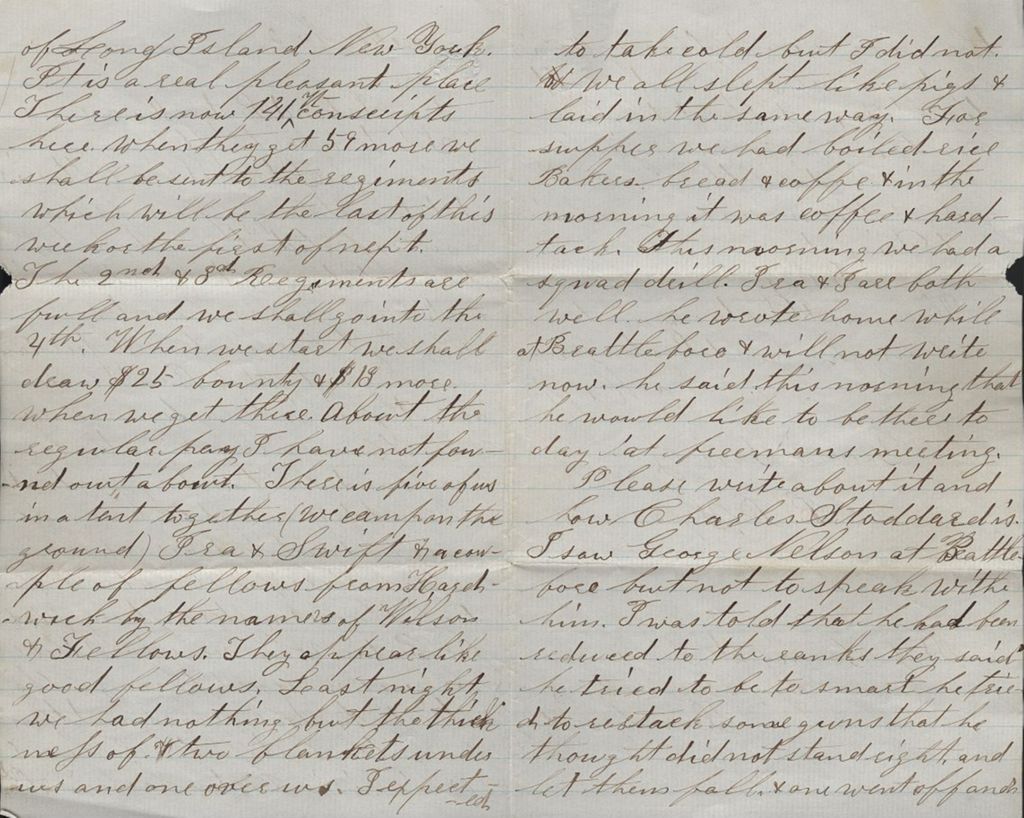 of Long Island New York.
It is a real pleasant place
There is now 141 Vt conscripts
here when they get 59 more we
shall be sent to the regiments
which will be the last of this
week or the first of next.
The 2nd & 3rd Regiments are
full and we shall go into the
4th. When we start we shall
draw $25 bounty & $13 more
when we get there. About the
regular pay I have not fou-
-nd out about. There is five of us
in a tent together (we camp on the
ground) Ira & Swift & a cou-
ple of fellows from Hard-
wick by the names of Wilson
& Fellows. They appear like
good fellows. Last night
we had nothing but the thick
ness of two blankets under
us and one over us. I expect
-ed
to take cold but I did not.
We all slept like pigs &
laid in the same way. For
supper we had boiled rice
Bakers bread & coffe & in the
morning it was coffee & hard-
tack. This morning we had a
squad drill. Ira & I are both
well. he wrote home while
at Brattleboro & will not write
now. he said this morning that
he would like to be there to
day at freemans meeting.
Please write about it and
how Charles Stoddard is.
I saw George Nelson at Brattle
boro but not to speak with
him. I was told that he had been
reduced to the ranks they said
he tried to be to smart he trie
d to restack some guns that he
thought did not stand right, and
let them fall, & one went off and